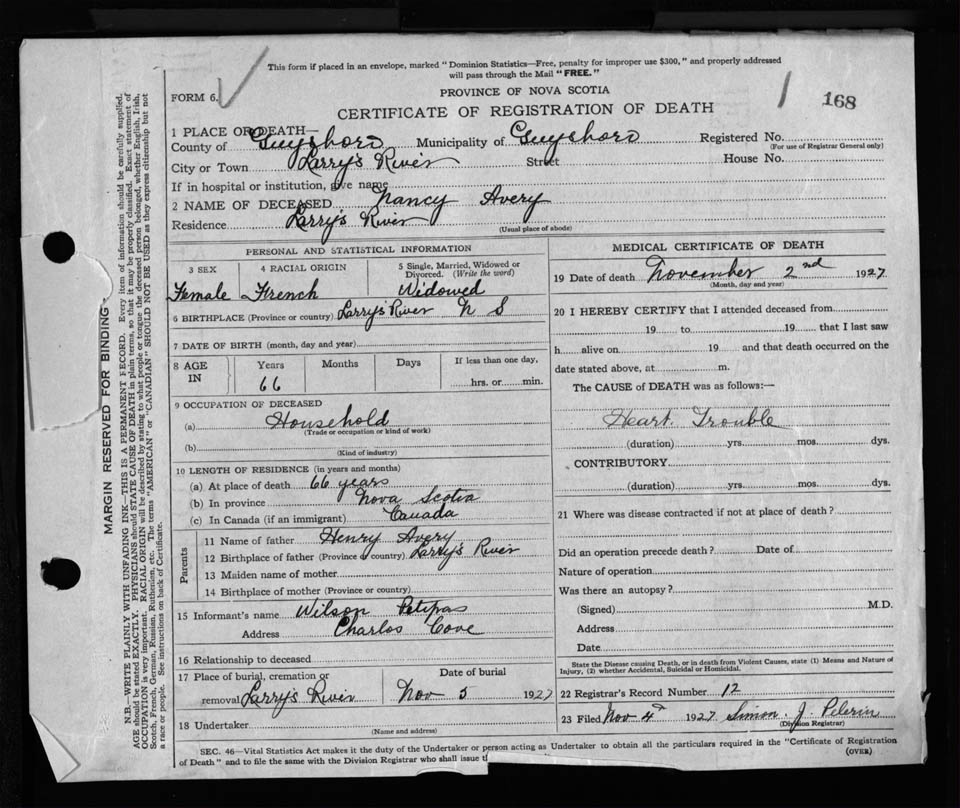 This form if placed in an envelope, marked "Dominion Statistics—Free, penalty for improper use $300," and properly addressed
will pass through the Mail "FREE."
FORM 6.
PROVINCE OF NOVA SCOTIA
168
CERTIFICATE OF REGISTRATION OF DEATH
1 PLACE OF DEATH—
County of Guysboro Municipality of Guysboro Registered No.
(For use of Registrar General only)
City or Town Larry's River Street House No.
If in hospital or institution, give name
2 NAME OF DECEASED Nancy Avery
Residence Larry's River
(Usual place of abode)
PERSONAL AND STATISTICAL INFORMATION
3 SEX 4 RACIAL ORIGIN 5 Single, Married, Widowed or
Divorced. (Write the word)
Female French Widowed
6 BIRTHPLACE (Province or country) Larry's River N S
7 DATE OF BIRTH (month, day and year)
8 AGE IN Years Months Days If less than one day,
66 hrs. or min.
9 OCCUPATION OF DECEASED
(a) Household
(Trade or occupation or kind of work)
(b)
(Kind of industry)
10 LENGTH OF RESIDENCE (in years and months)
(a) At place of death 66 years
(b) In province Nova Scotia
(c) In Canada (if an immigrant) Canada
Parents
11 Name of father Henry Avery
12 Birthplace of father (Province or country) Larry's River
13 Maiden name of mother
14 Birthplace of mother (Province or country)
15 Informant's name Wilson Petipas
Address Charlos Cove
16 Relationship to deceased
17 Place of burial, cremation or Date of burial
removal Larry's River Nov 5 1927
18 Undertaker
(Name and address)
MEDICAL CERTIFICATE OF DEATH
19 Date of death November 2nd 1927
(Month, day and year)
20 I HEREBY CERTIFY that I attended deceased from
19 to 19 that I last saw
h alive on 19 and that death occurred on the
date stated above, at m.
The CAUSE of DEATH was as follows:—
Heart Trouble
(duration) yrs. mos. dys.
CONTRIBUTORY
(duration) yrs. mos. dys.
21 Where was disease contracted if not at place of death?
Did an operation precede death? Date of
Nature of operation
Was there an autopsy?
(Signed) M.D.
Address
Date
State the Disease causing Death, or in death from Violent Causes, state (1) Means and Nature of
Injury, (2) whether Accidental, Suicidal or Homicidal.
22 Registrar's Record Number 12
23 Filed Nov 4th 1927 Simon J. Pelerin
(Division Registrar)
SEC. 46—Vital Statistics Act makes it the duty of the Undertaker or person acting as Undertaker to obtain all the particulars required in the "Certificate of Registration
of Death" and to file the same with the Division Registrar who shall issue t
(OVER)
MARGIN RESERVED FOR BINDING
N.B.—WRITE PLAINLY WITH UNFADING INK—THIS IS A PERMANENT RECORD. Every item of information should be carefully supplied.
AGE should be stated EXACTLY. PHYSICIANS should STATE CAUSE OF DEATH in plain terms, so that it may be properly classified. Exact statement of
OCCUPATION is very important. RACIAL ORIGIN will be described by stating to what people or tongue the deceased person belonged, whether English, Irish,
Scotch, French, German, Russian, Ruthenian, etc. The terms "AMERICAN" or "CANADIAN" SHOULD NOT BE USED as they express citizenship but not
a race or people. See instructions on back of Certificate.